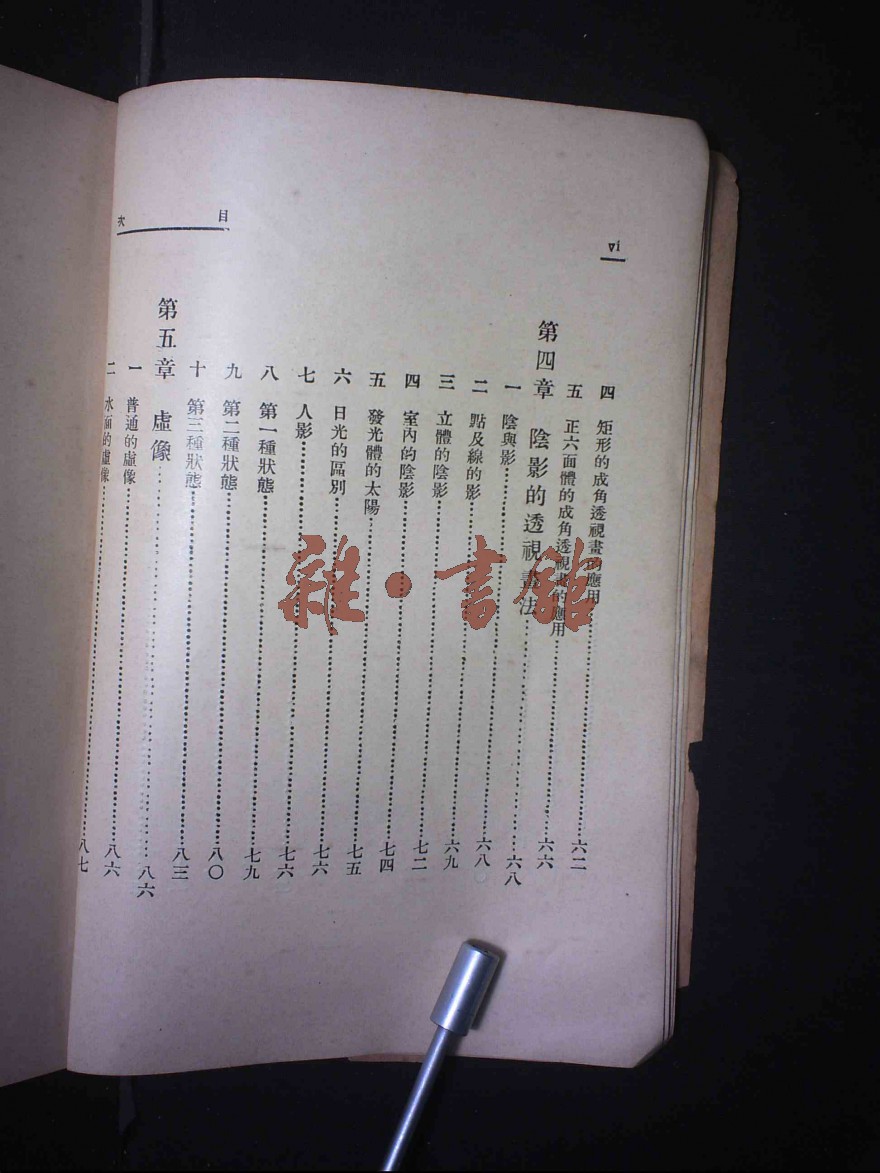 目次
vi
四 矩形的成角透視畫的應用……六二
五 正六面體的成角透視畫的應用……六六
第四章 陰影的透視畫法……六八
一 陰與影……六八
二 點及線的影……六九
三 立體的陰影……七二
四 室內的陰影……七四
五 發光體的太陽……七五
六 日光的區別……七六
七 人影……七六
八 第一種狀態……七九
九 第二種狀態……八〇
十 第三種狀態……八三
第五章 虛像……八六
一 普通的虛像……八六
二 水面的虛像……八七
雜·書館